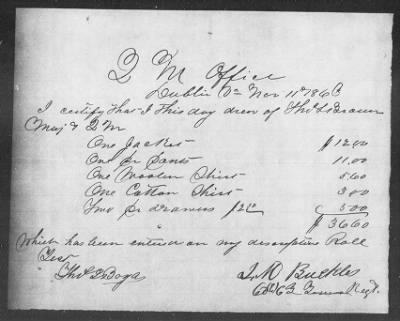 Q M Office
Dublin Va Nov 11th 186
I certify that I this day drew of Thos L Broun
Maj & Q M
One Jacket $12.00
One pr Pants 11.00
One Woolen Shirt 5.60
One Cotton Shirt 3.00
Two pr drawers 5.00
$36.60
Which has been entered on my descriptive Roll
Test
Thos
Buckles
Regt.